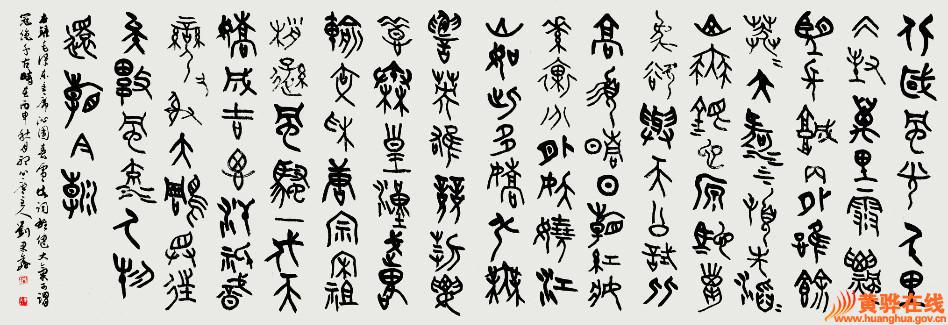 北國風光千里
冰封萬里雪飄
望長城內外惟餘
莽莽大河上下頓失滔滔
山舞銀蛇原馳蠟
象欲與天公試比
高須晴日看紅妝
素裹分外妖嬈江
山如此多嬌引無
數英雄競折腰
惜秦皇漢武略
輸文采唐宗宋祖
稍遜風騷一代天
驕成吉思汗只識
彎弓射大雕俱往
矣數風流人物
還看今朝
右錄毛澤東主席沁園春雪此詞雄健大氣可謂
冠絕千古時在丙申秋月
黄骅在线
www.huanghua.gov.cn